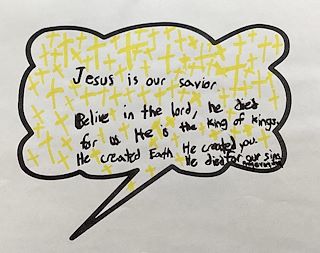 Jesus is our savior
Belive in the lord, he died
for us He is the king of kings.
He created Earth He created you.
He died for our sins